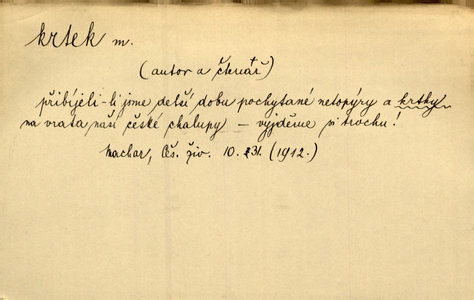 krtek m.
(autor a čtenář)
přibíjeli-li jsme delší dobu pochytané netopýry a krtky
na vrata naší české chalupy – vyjděme si trochu!
Machar, Čs. živ. 10. 231. (1912.)